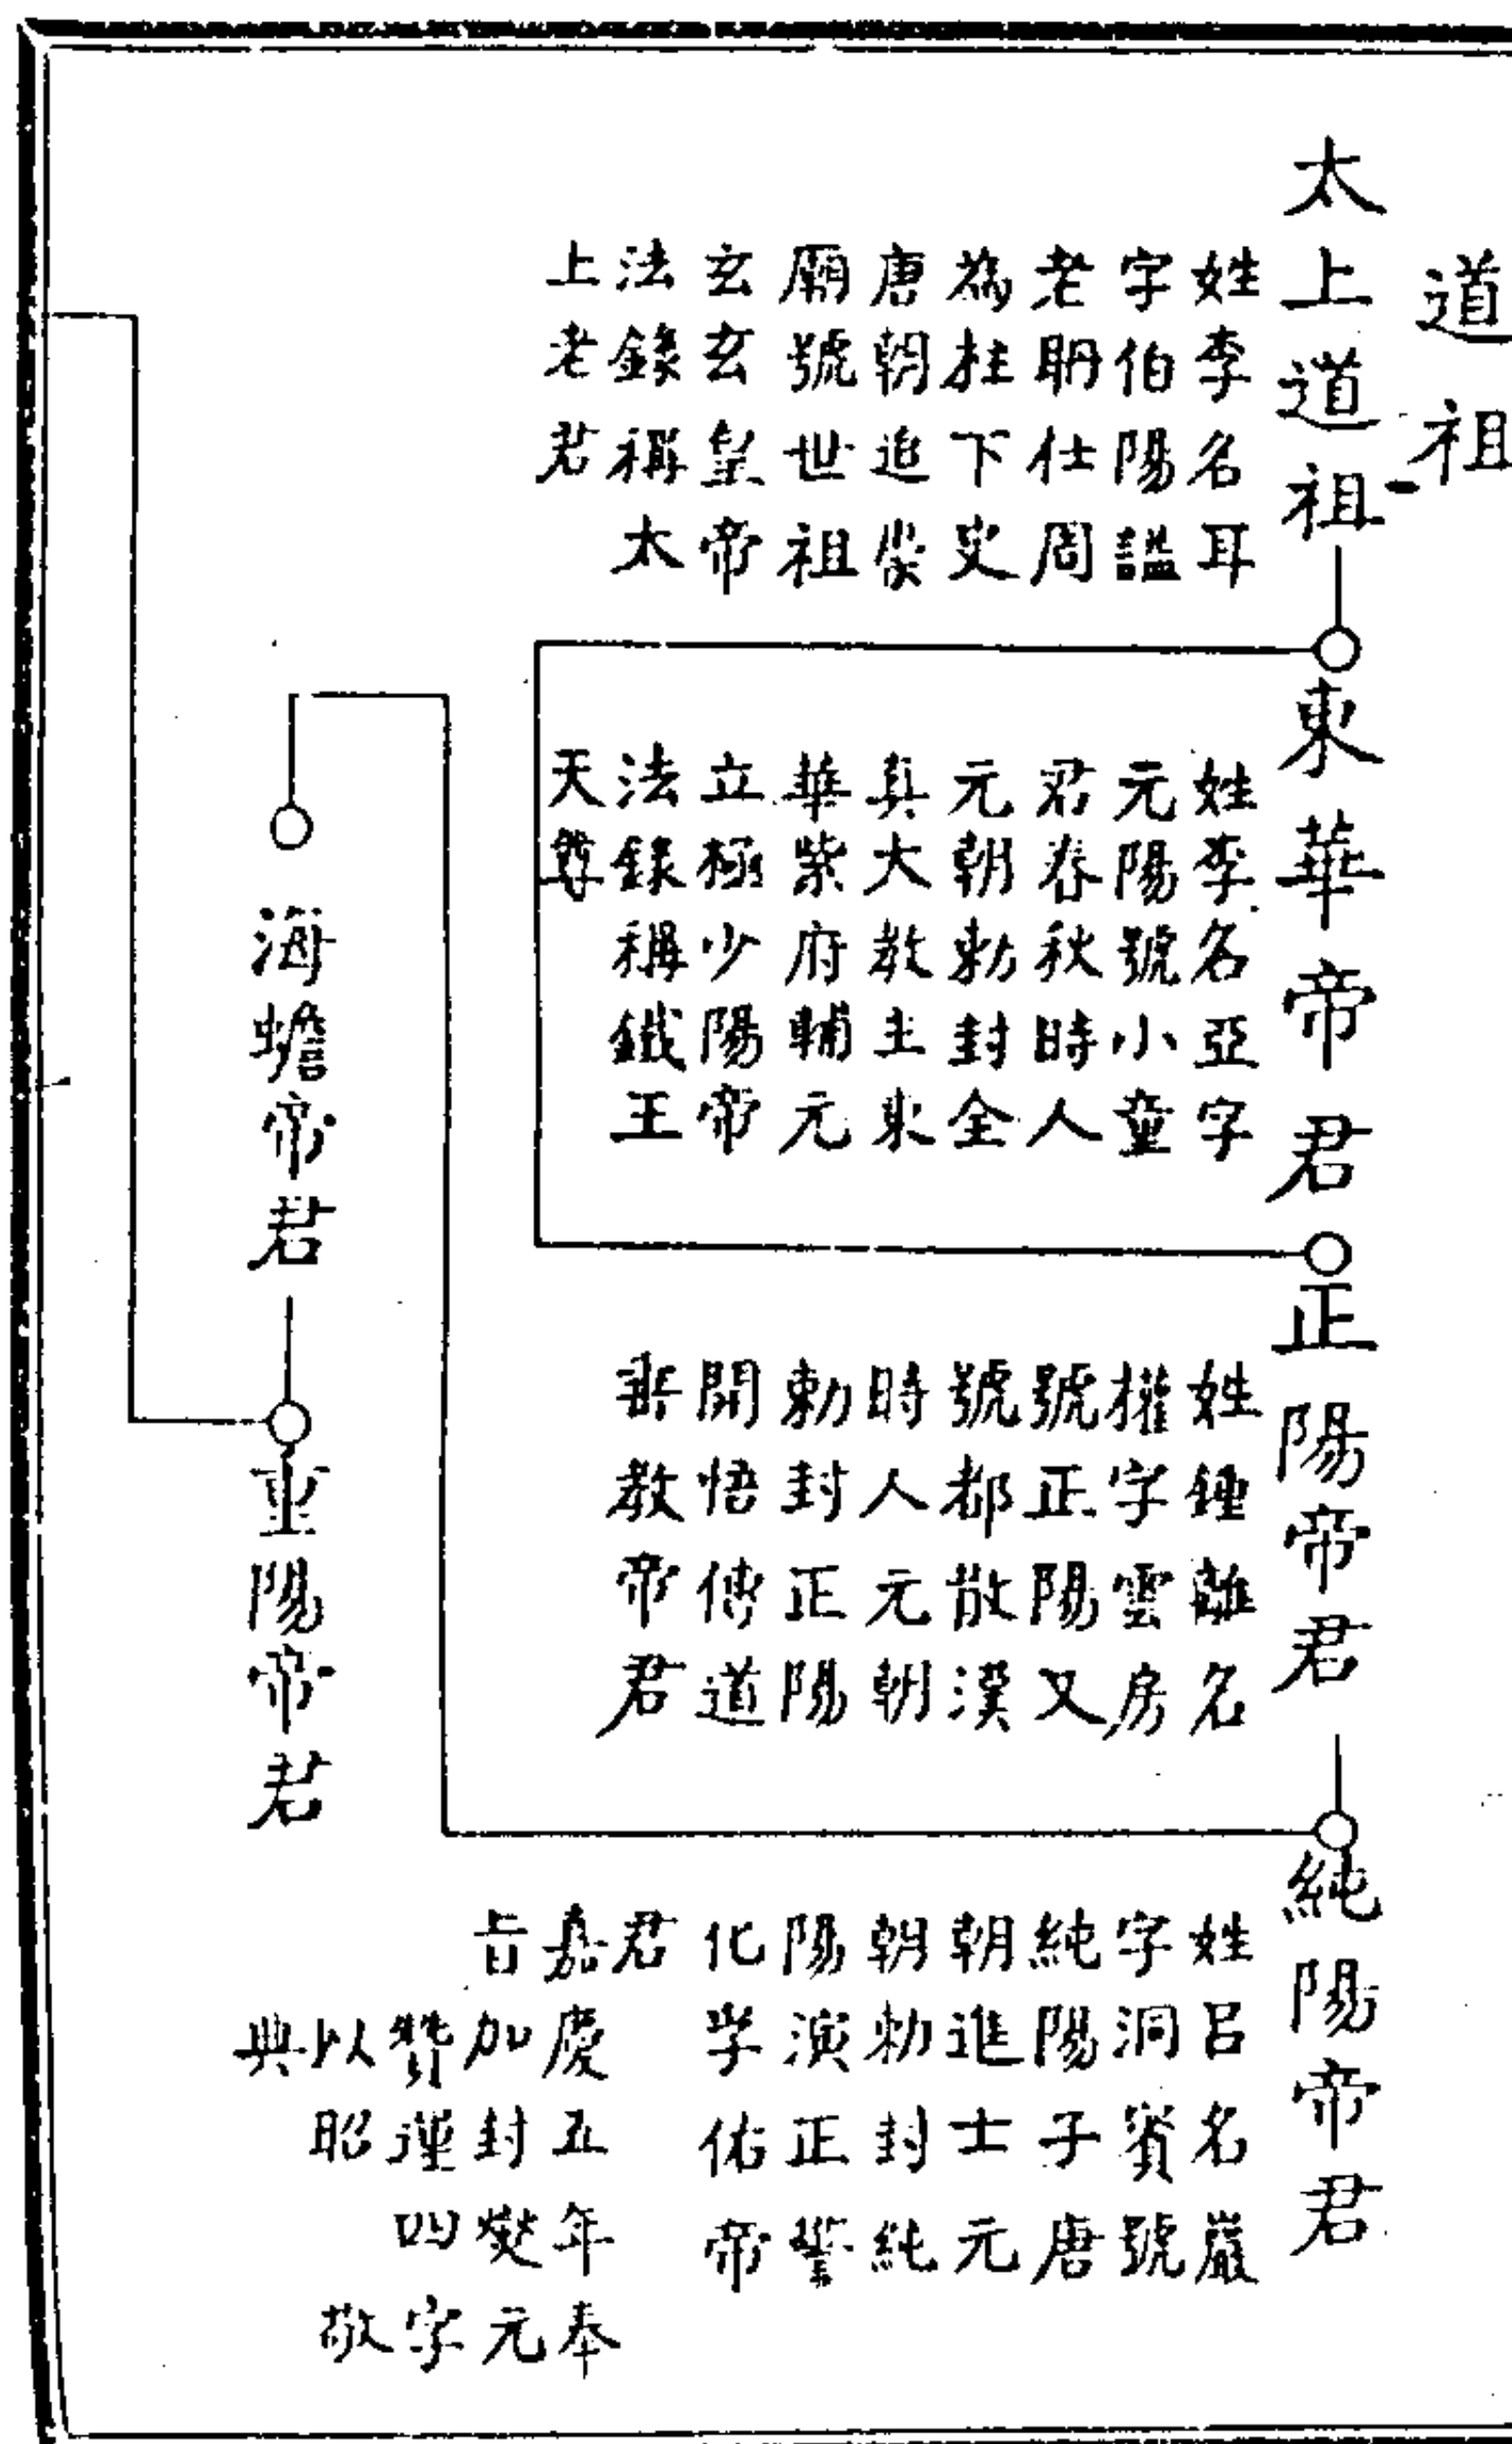 道祖
太上道祖
姓李名耳
字伯陽謚
老聃仕周
為柱下史
唐朝追崇
廟號世祖
玄玄皇帝
法錄稱太
上老君
東華帝君
姓李名亞字
元陽號小童
君春秋時人
元朝勅封全
真大教主東
華紫府輔元
立極少陽帝
法錄稱鐵王
天尊
正陽帝君
姓鍾離名
權字雲房
號正陽又
號都散漢
時人元朝
勅封正陽
開悟傳道
垂教帝君
純陽帝君
姓呂名巖
字洞賓號
純陽子唐
朝進士元
朝勅封純
陽演正警
化孚佑帝
君
嘉慶五年奉
旨加封燮元
贊運四字
以昭敬
典
海蟾帝君
重陽帝君